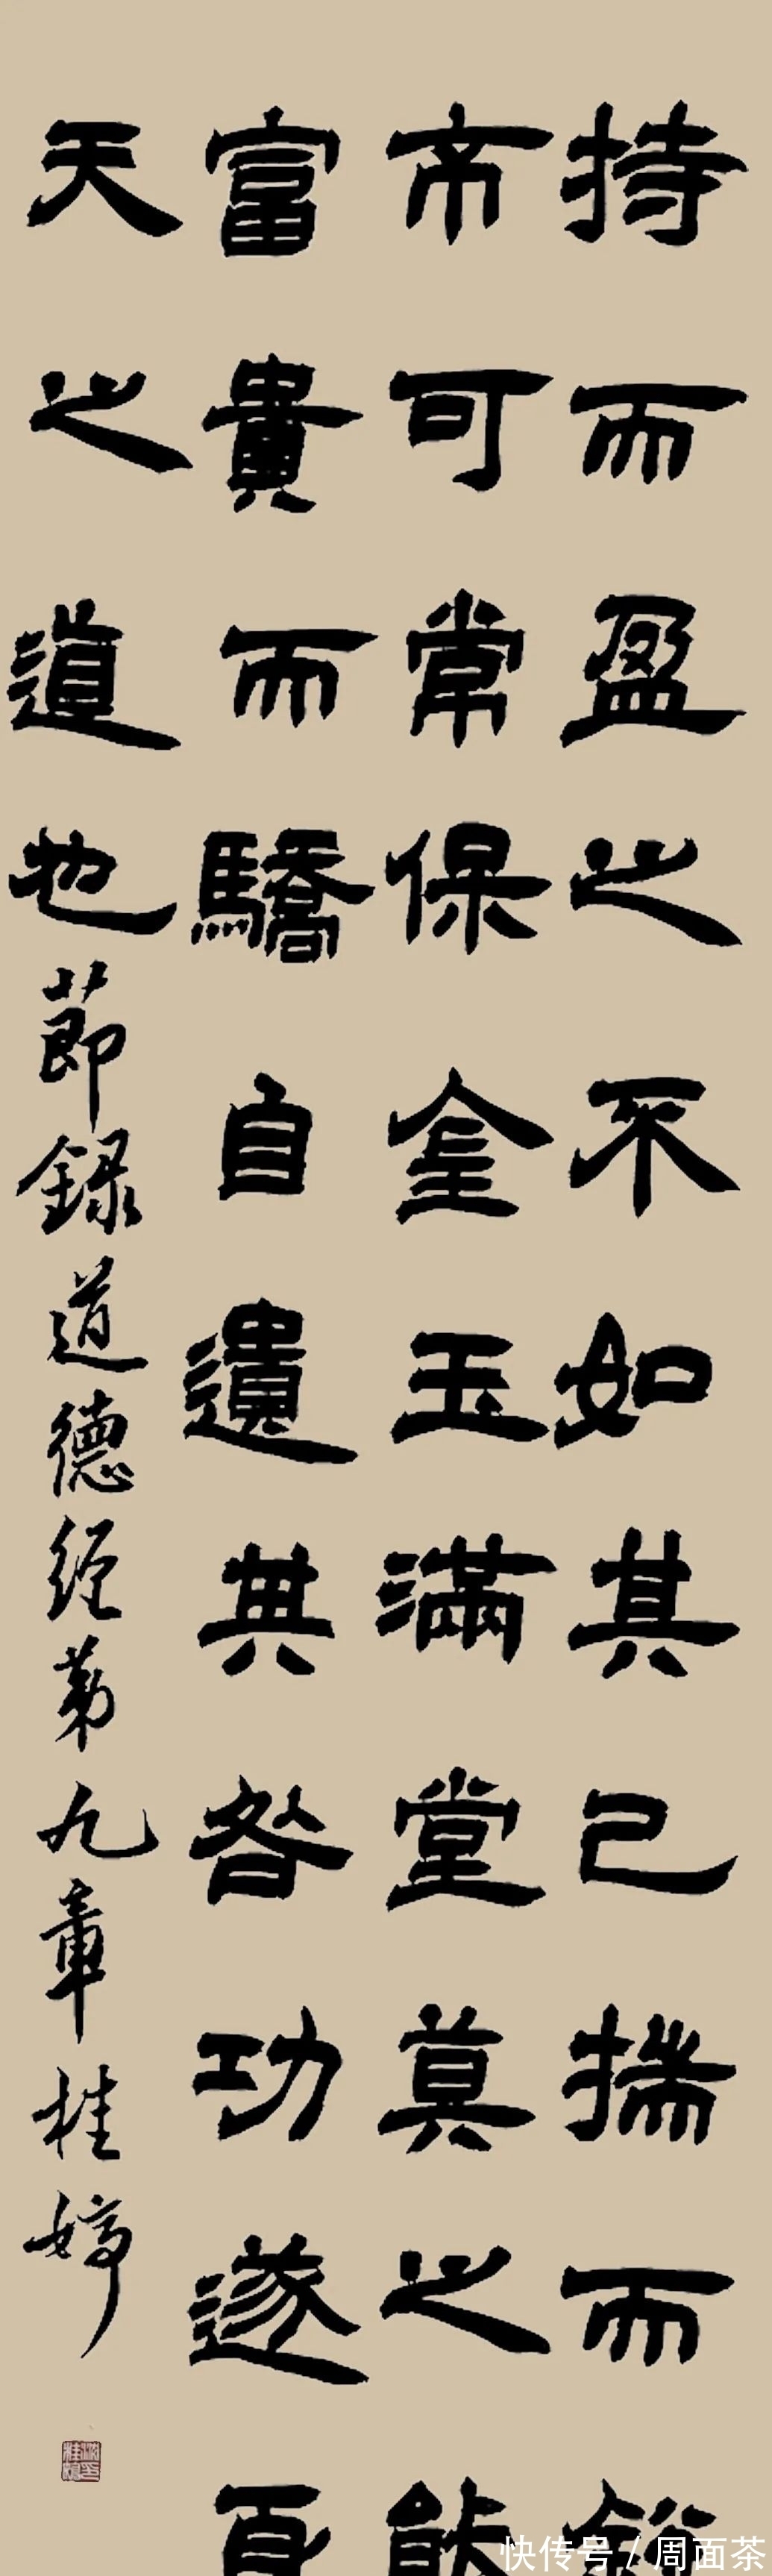 持而盈之不如其已揣而
市可常保金玉滿堂莫之能
富貴而驕自遺其咎功遂
天之道也
節錄道德經第九章桂婷
快传号 / 周面茶